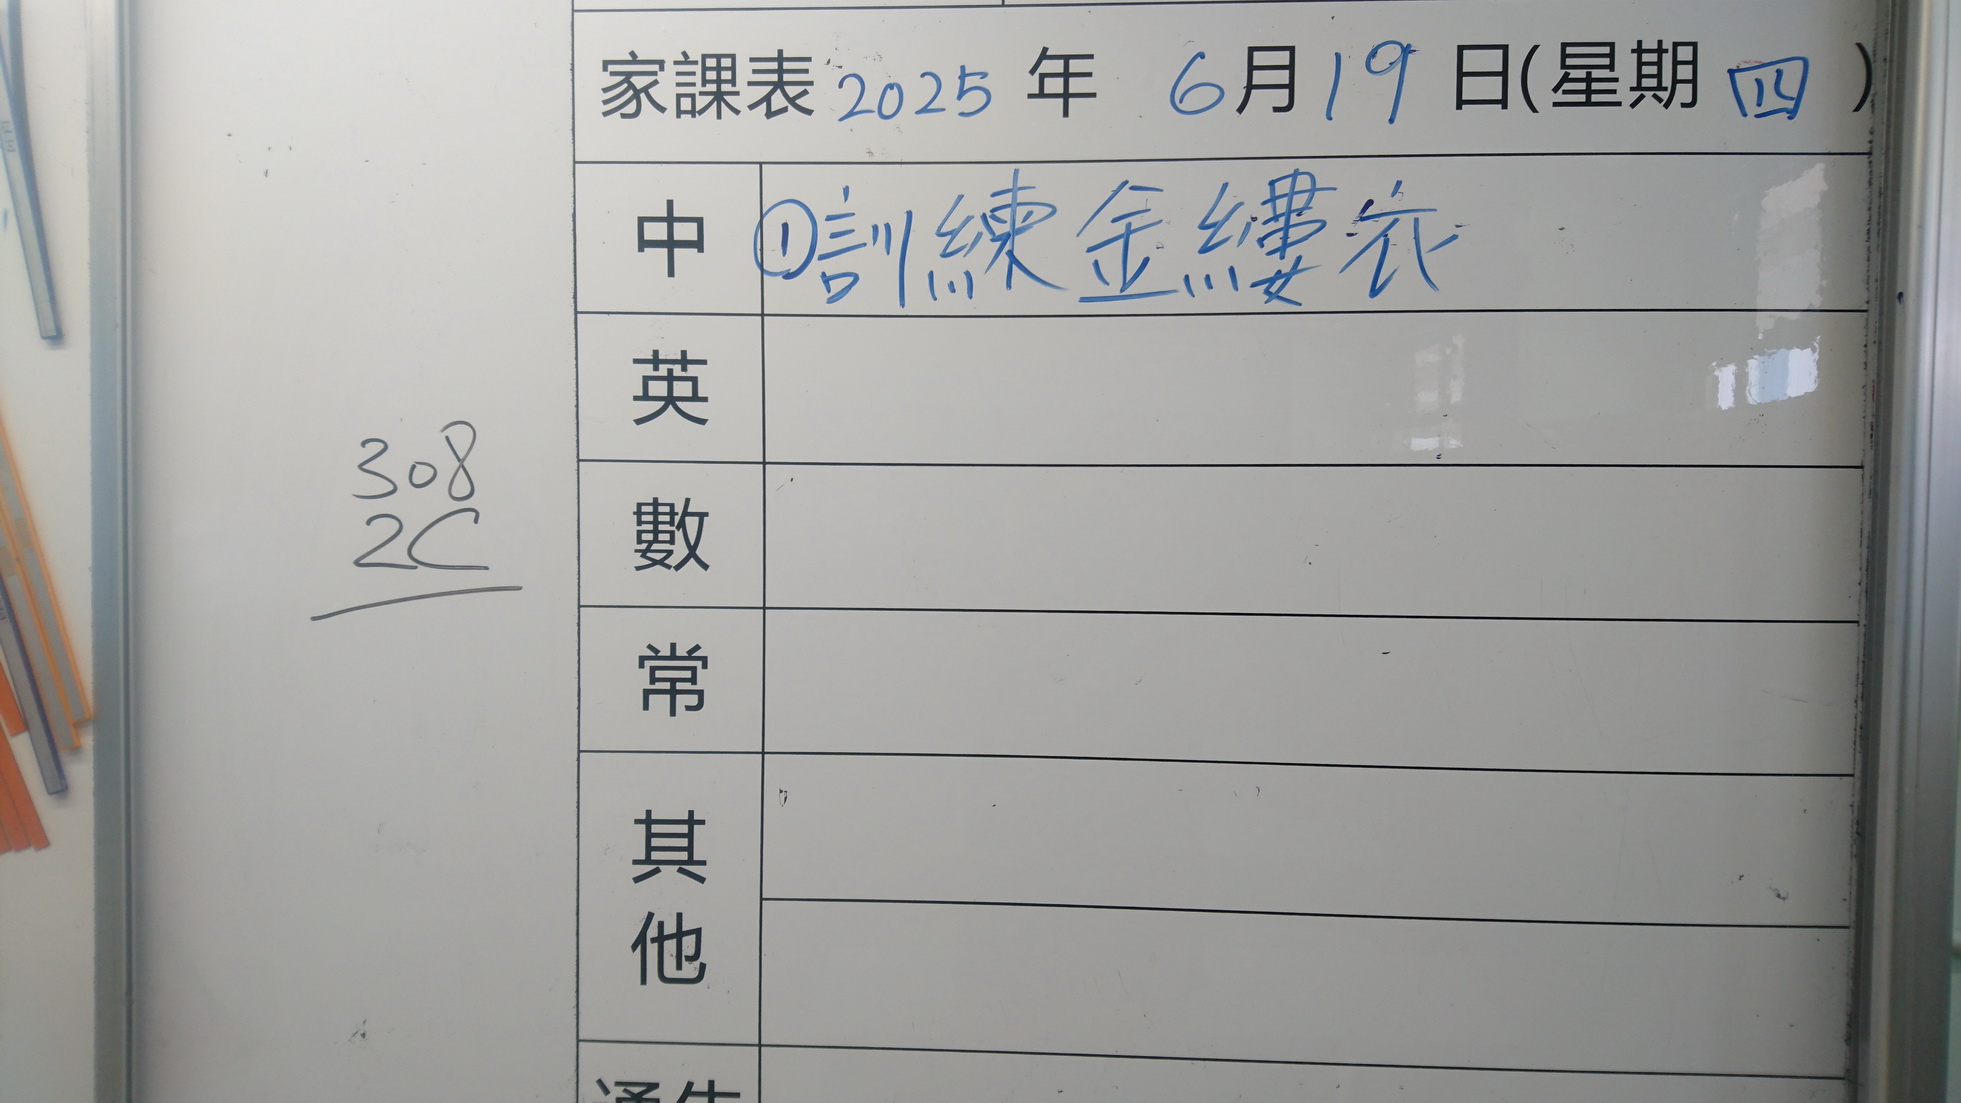 家課表 2025 年 6月19日(星期四)
中 ①訓練金縷衣
英
308
2C
數
常
其他
通告